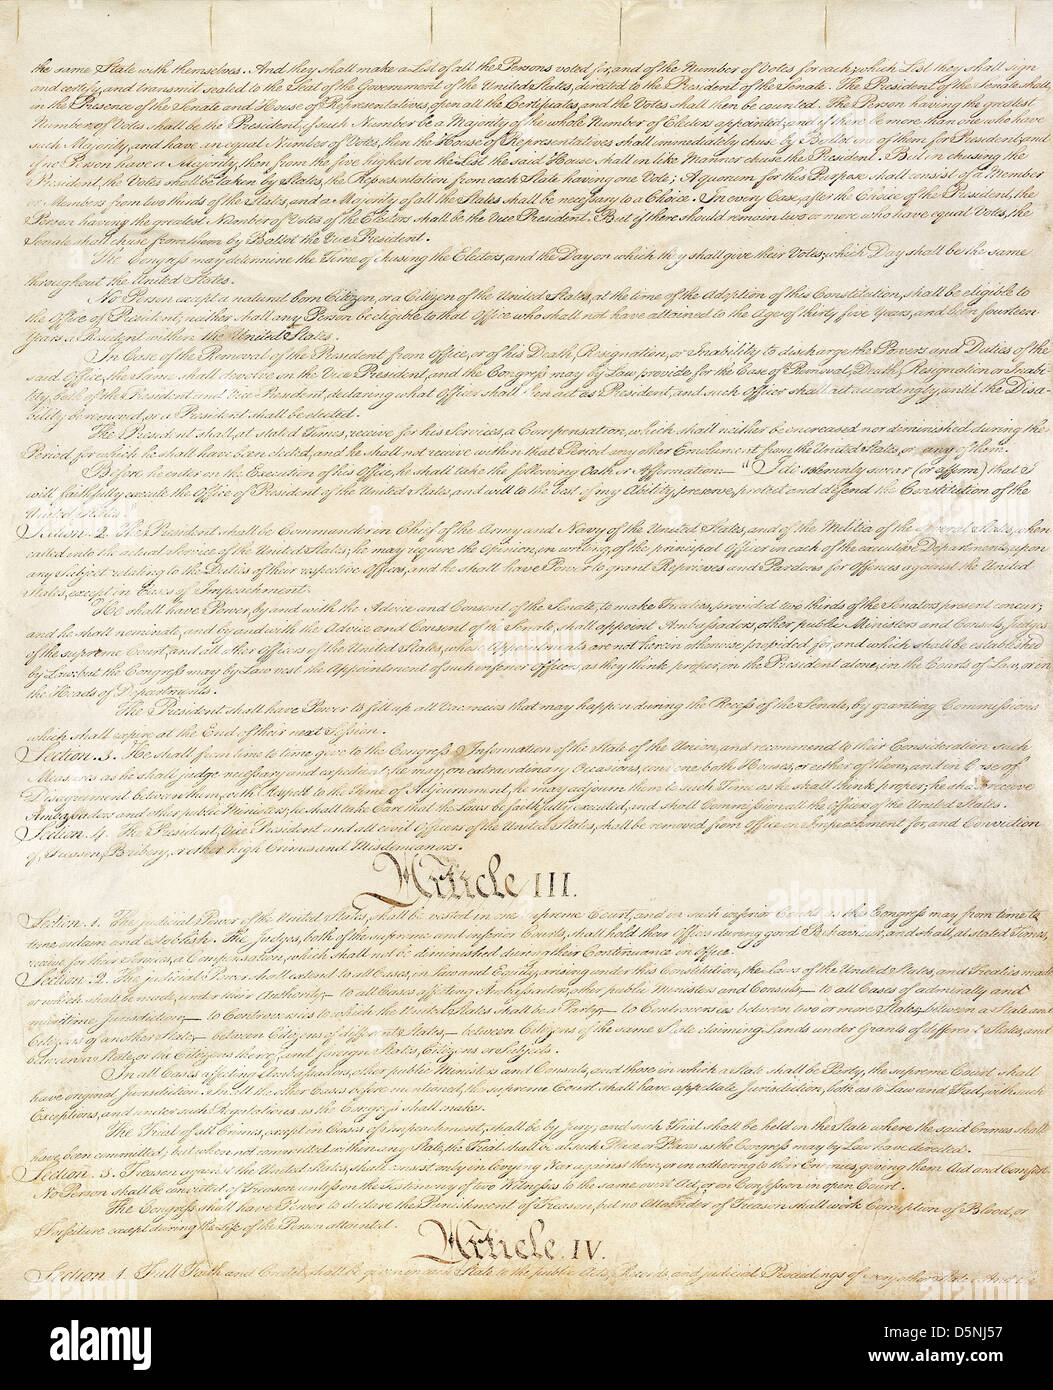 the same State with themselves. And they shall make a List of all the Persons voted for, and of the Number of Votes for each; which List they shall sign
and certify, and transmit sealed to the Seat of the Government of the United States, directed to the President of the Senate. The President of the Senate shall,
in the Presence of the Senate and House of Representatives, open all the Certificates, and the Votes shall then be counted. The Person having the greatest
Number of Votes shall be the President, if such Number be a Majority of the whole Number of Electors appointed; and if there be more than one who have
such Majority, and have an equal Number of Votes, then the House of Representatives shall immediately chuse by Ballot one of them for President; and
if no Person have a Majority, then from the five highest on the List the said House shall in like Manner chuse the President. But in chusing the
President, the Votes shall be taken by States, the Representation from each State having one Vote; A quorum for this Purpose shall consist of a Member
or Members from two thirds of the States, and a Majority of all the States shall be necessary to a Choice. In every Case, after the Choice of the President, the
Person having the greatest Number of Votes of the Electors shall be the Vice President. But if there should remain two or more who have equal Votes, the
Senate shall chuse from them by Ballot the Vice President.
The Congress may determine the Time of chusing the Electors, and the Day on which they shall give their Votes; which Day shall be the same
throughout the United States.
No Person except a natural born Citizen, or a Citizen of the United States, at the time of the Adoption of this Constitution, shall be eligible to
the Office of President; neither shall any Person be eligible to that Office who shall not have attained to the Age of thirty five Years, and been fourteen
Years a Resident within the United States.
In Case of the Removal of the President from Office, or of his Death, Resignation, or Inability to discharge the Powers and Duties of the
said Office, the Same shall devolve on the Vice President, and the Congress may by Law provide for the Case of Removal, Death, Resignation or Inabi-
lity, both of the President and Vice President, declaring what Officer shall then act as President, and such Officer shall act accordingly, until the Disa-
bility be removed, or a President shall be elected.
The President shall, at stated Times, receive for his Services, a Compensation, which shall neither be encreased nor diminished during the
Period for which he shall have been elected, and he shall not receive within that Period any other Emolument from the United States, or any of them.
Before he enter on the Execution of his Office, he shall take the following Oath or Affirmation:— "I do solemnly swear (or affirm) that I
will faithfully execute the Office of President of the United States, and will to the best of my Ability, preserve, protect and defend the Constitution of the
United States."
Section. 2. The President shall be Commander in Chief of the Army and Navy of the United States, and of the Militia of the several States, when
called into the actual Service of the United States; he may require the Opinion, in writing, of the principal Officer in each of the executive Departments, upon
any Subject relating to the Duties of their respective Offices, and he shall have Power to grant Reprieves and Pardons for Offences against the United
States, except in Cases of Impeachment.
He shall have Power, by and with the Advice and Consent of the Senate, to make Treaties, provided two thirds of the Senators present concur;
and he shall nominate, and by and with the Advice and Consent of the Senate, shall appoint Ambassadors, other public Ministers and Consuls, Judges
of the supreme Court, and all other Officers of the United States, whose Appointments are not herein otherwise provided for, and which shall be established
by Law: but the Congress may by Law vest the Appointment of such inferior Officers, as they think proper, in the President alone, in the Courts of Law, or in
the Heads of Departments.
The President shall have Power to fill up all Vacancies that may happen during the Recess of the Senate, by granting Commissions
which shall expire at the End of their next Session.
Section. 3. He shall from time to time give to the Congress Information of the State of the Union, and recommend to their Consideration such
Measures as he shall judge necessary and expedient; he may, on extraordinary Occasions, convene both Houses, or either of them, and in Case of
Disagreement between them, with Respect to the Time of Adjournment, he may adjourn them to such Time as he shall think proper; he shall receive
Ambassadors and other public Ministers; he shall take Care that the Laws be faithfully executed, and shall Commission all the Officers of the United States.
Section. 4. The President, Vice President and all civil Officers of the United States, shall be removed from Office on Impeachment for, and Conviction
of, Treason, Bribery, or other high Crimes and Misdemeanors.
Article III.
Section. 1. The judicial Power of the United States, shall be vested in one supreme Court, and in such inferior Courts as the Congress may from time to
time ordain and establish. The Judges, both of the supreme and inferior Courts, shall hold their Offices during good Behaviour, and shall, at stated Times,
receive for their Services, a Compensation, which shall not be diminished during their Continuance in Office.
Section. 2. The judicial Power shall extend to all Cases, in Law and Equity, arising under this Constitution, the Laws of the United States, and Treaties made,
or which shall be made, under their Authority;— to all Cases affecting Ambassadors, other public Ministers and Consuls;— to all Cases of admiralty and
maritime Jurisdiction;— to Controversies to which the United States shall be a Party;— to Controversies between two or more States;— between a State and
Citizens of another State;— between Citizens of different States,— between Citizens of the same State claiming Lands under Grants of different States, and
between a State, or the Citizens thereof, and foreign States, Citizens or Subjects.
In all Cases affecting Ambassadors, other public Ministers and Consuls, and those in which a State shall be Party, the supreme Court shall
have original Jurisdiction. In all the other Cases before mentioned, the supreme Court shall have appellate Jurisdiction, both as to Law and Fact, with such
Exceptions, and under such Regulations as the Congress shall make.
The Trial of all Crimes, except in Cases of Impeachment, shall be by Jury; and such Trial shall be held in the State where the said Crimes shall
have been committed; but when not committed within any State, the Trial shall be at such Place or Places as the Congress may by Law have directed.
Section. 3. Treason against the United States, shall consist only in levying War against them, or in adhering to their Enemies, giving them Aid and Comfort.
No Person shall be convicted of Treason unless on the Testimony of two Witnesses to the same overt Act, or on Confession in open Court.
The Congress shall have Power to declare the Punishment of Treason, but no Attainder of Treason shall work Corruption of Blood, or
Forfeiture except during the Life of the Person attainted.
Article. IV.
Section. 1. Full Faith and Credit shall be given in each State to the public Acts, Records, and judicial Proceedings of every other State. And the
alamy
Image ID: D5NJ57
www.alamy.com